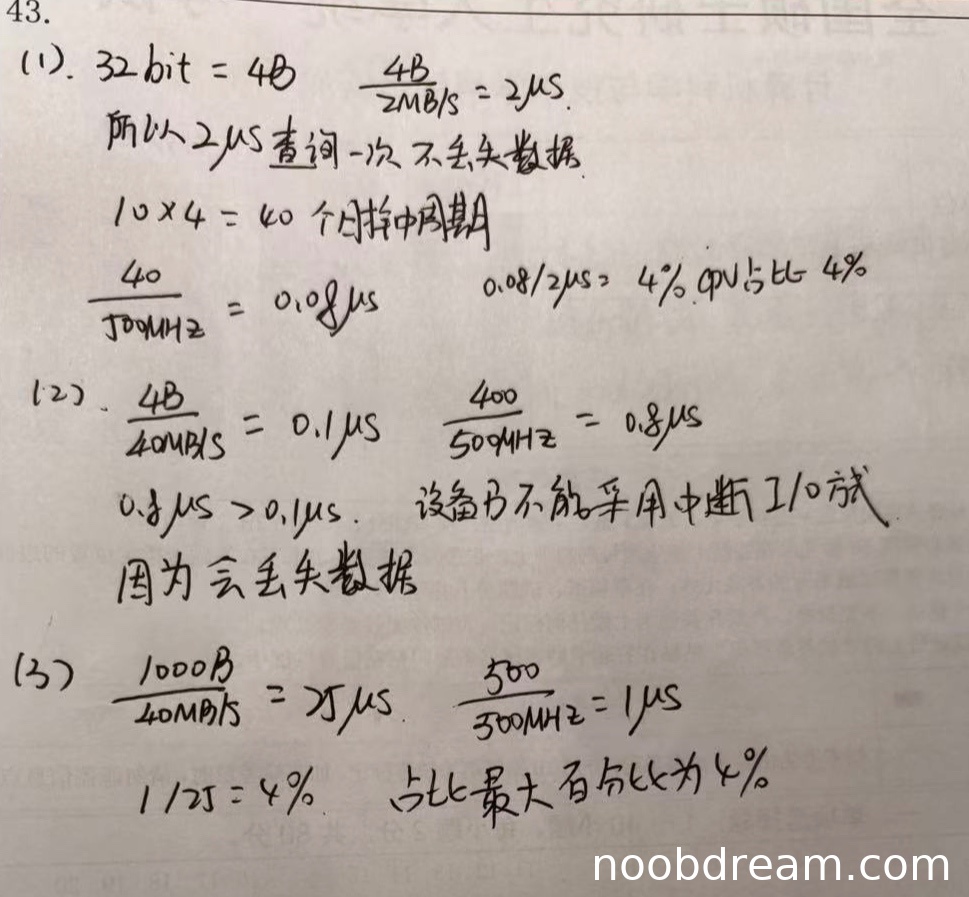 43.
(1). 32bit = 4B 4B/2MB/s = 2μs.
所以2μs查询一次 不丢失数据.
10×4 = 40 个时钟周期
40/500MHz = 0.08μs 0.08/2μs = 4%. CPU占比 4%
(2). 4B/40MB/s = 0.1μs 400/500MHz = 0.8μs
0.8μs > 0.1μs. 设备B不能采用中断I/O方式.
因为会丢失数据
(3) 1000B/40MB/s = 25μs. 500/500MHz = 1μs
1/25 = 4% 占比最大百分比为4%
noobdream.com